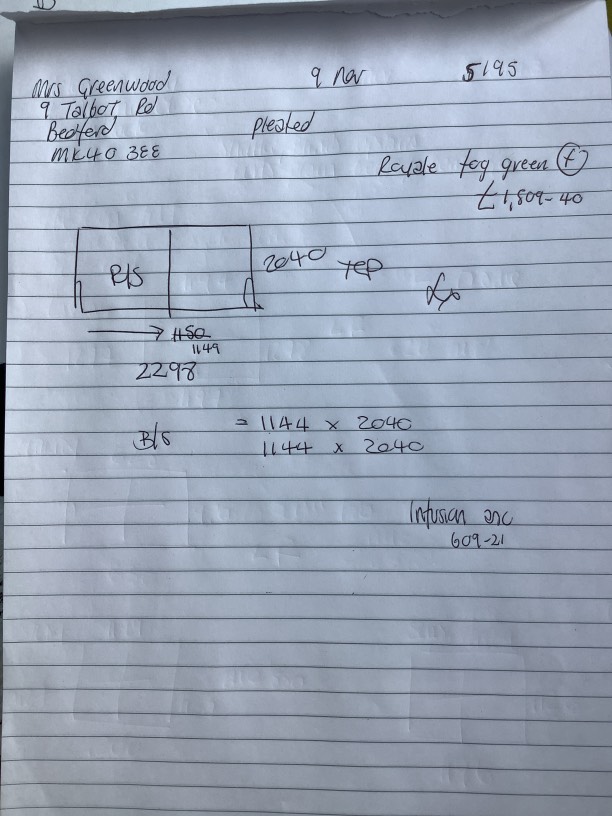 Mrs Greenwood 9 Nov 5195
9 Talbot Rd
Bedford pleated
MK40 3EE
fog green (f)
£1,809-40
2040
B/S
1150
1149
2298
B/S = 1144 x 2040
1144 x 2040
Infusion
609-21